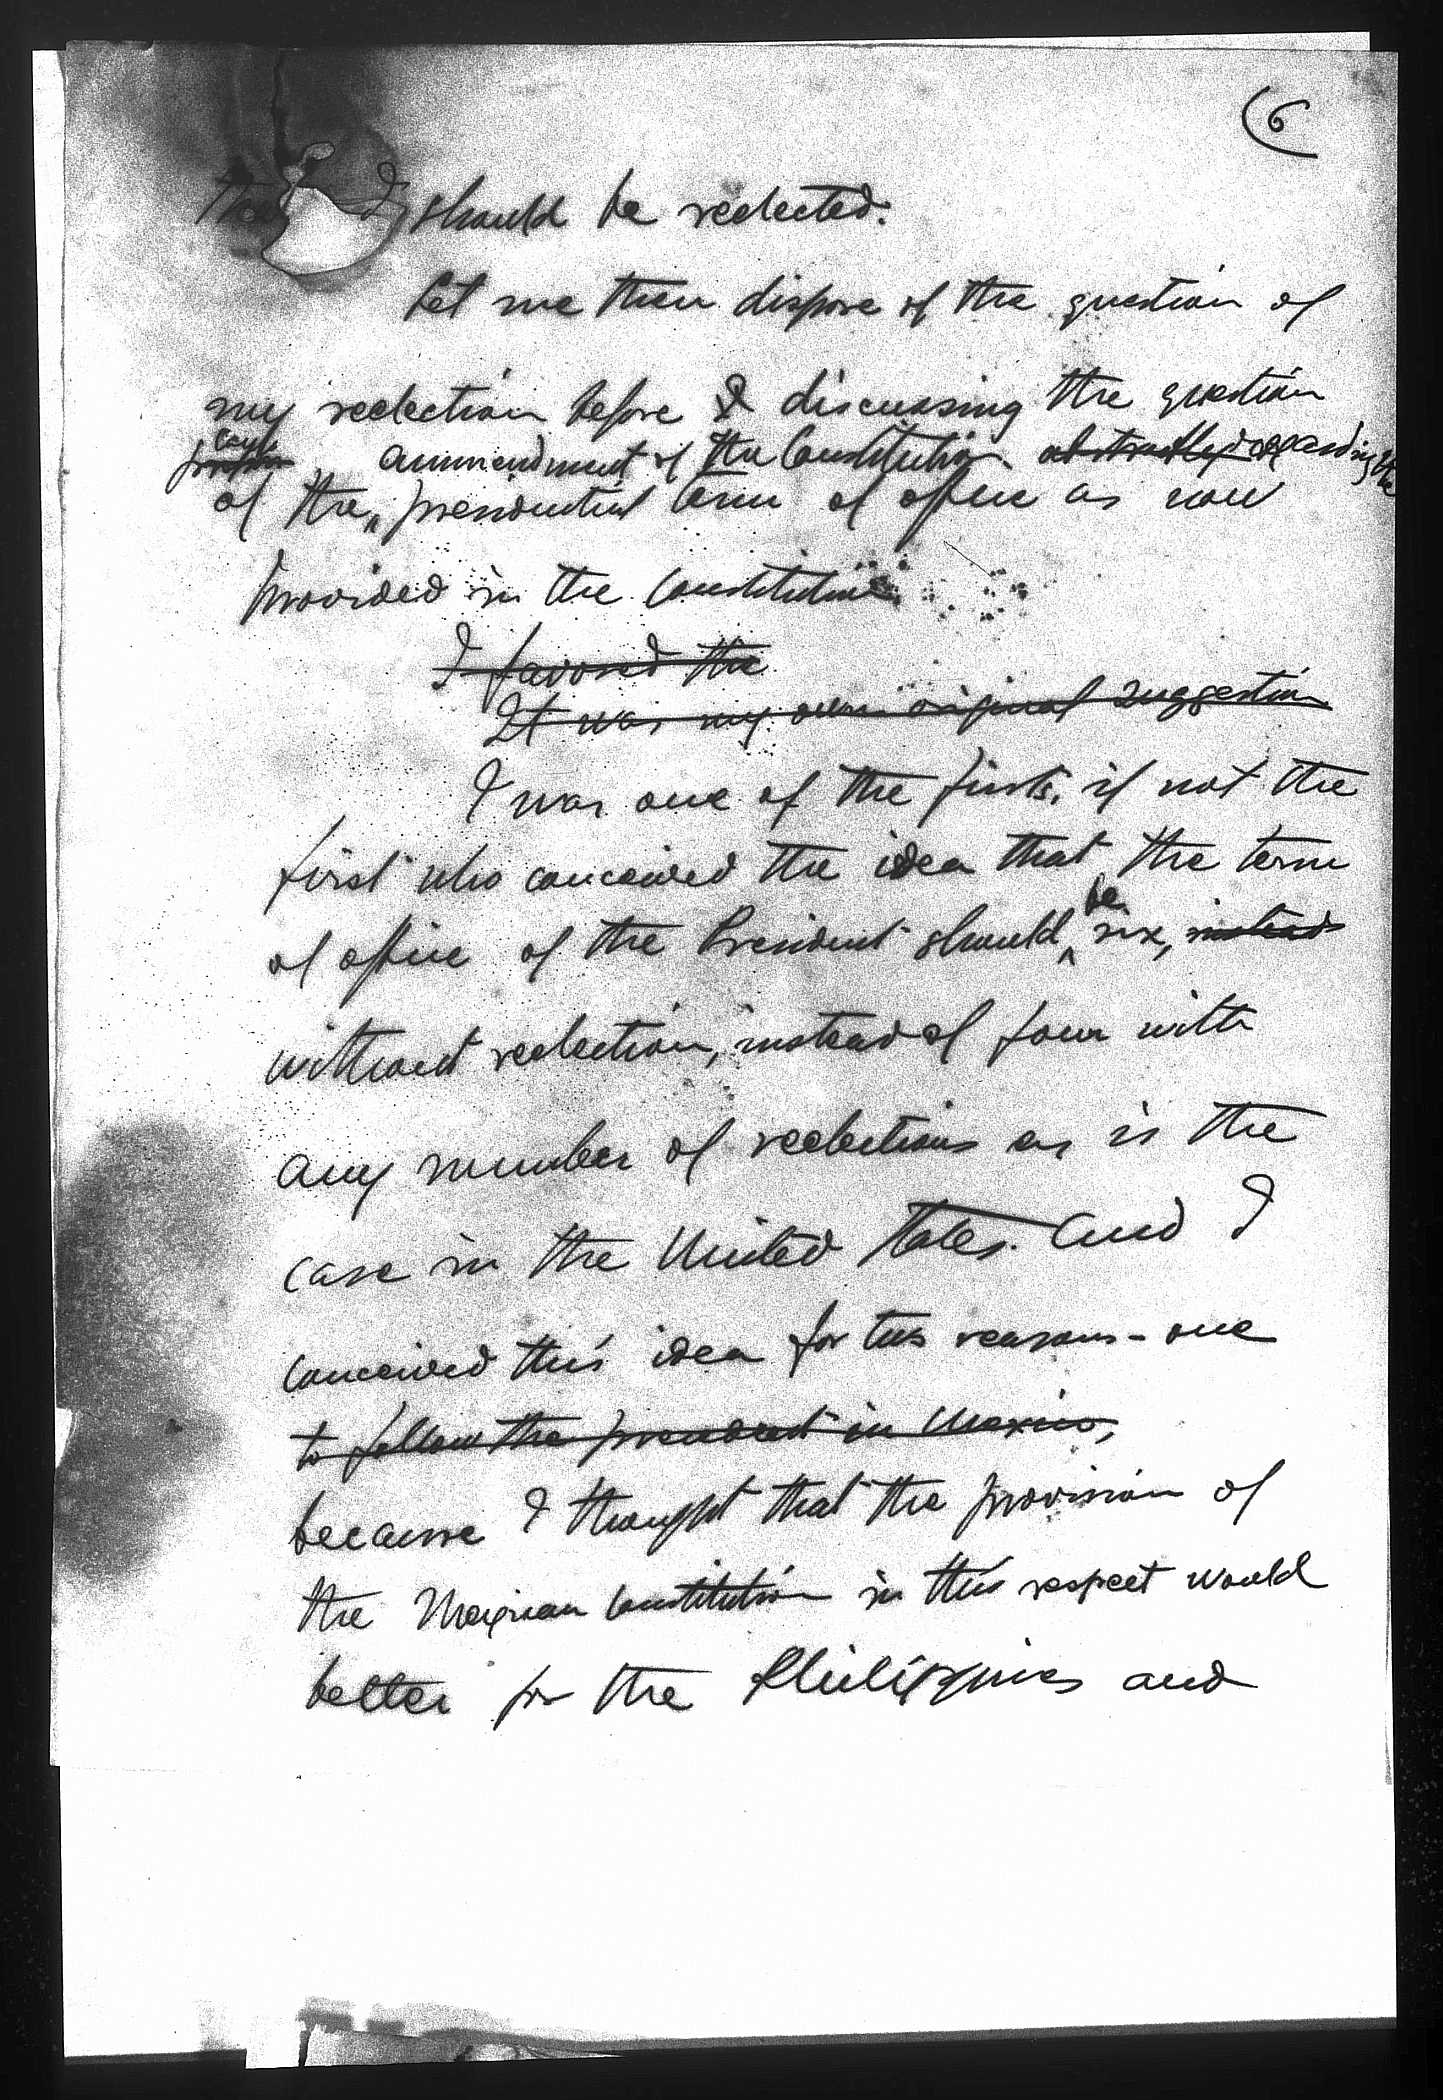 6
that I should be reelected.
Let me then dispose of the question of
my reelection before I discussing the question
ammendment of the Constitution abstractly regarding the
of the presidential term of office as now
provided in the Constitution
I favored the
It was my own original suggestion
I was one of the firsts, if not the
first who conceived the idea that the term
be
of office of the President should six, instead
without reelection, instead of four with
any number of reelections as is the
case in the United States. And I
conceived this idea for two reasons - one
to follow the precedent in Mexico,
because I thought that the provision of
the Mexican Constitution in this respect would
better for the Philippines and